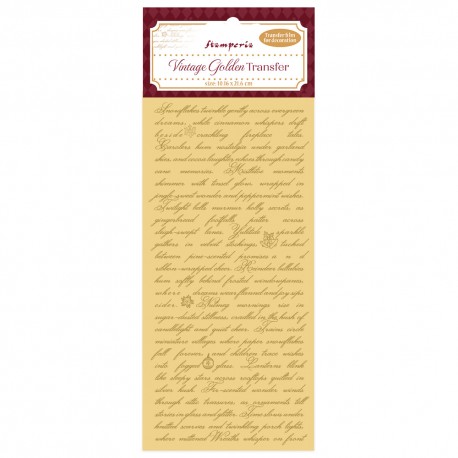 Transfer film
for decoration
Stamperia
Vintage Golden Transfer
size 10.16 x 21.6 cm
Snowflakes twinkle gently across evergreen
dreams, while cinnamon whispers drift
beside crackling fireplace tales.
Carolers hum nostalgia under garland
skies, and cocoa laughter stirs through candy
cane memories. Mistletoe moments
shimmer with tinsel glow, wrapped in
jingle-sweet wonder and peppermint wishes.
Twilight bells murmur holly secrets as
gingerbread footfalls patter across
sleigh-swept lanes. Yuletide sparkle
gathers in velvet stockings, tucked
between pine-scented promises and
ribbon-wrapped cheer. Reindeer lullabies
hum softly behind frosted windowpanes,
where dreams wear flannel and joy sips
cider. Nutmeg mornings rise in
sugar-dusted stillness, cradled in the hush of
candlelight and quiet cheer. Trains circle
miniature villages where paper snowflakes
fall forever, and children trace wishes
onto fogged glass. Lanterns blink
like sleepy stars across rooftops quilted in
silver hush. Far-scented wonder weaves
through attic treasures, as ornaments tell
stories in glass and glitter. Time slows under
knitted scarves and twinkling porch lights,
where mittened Wreaths whisper on front